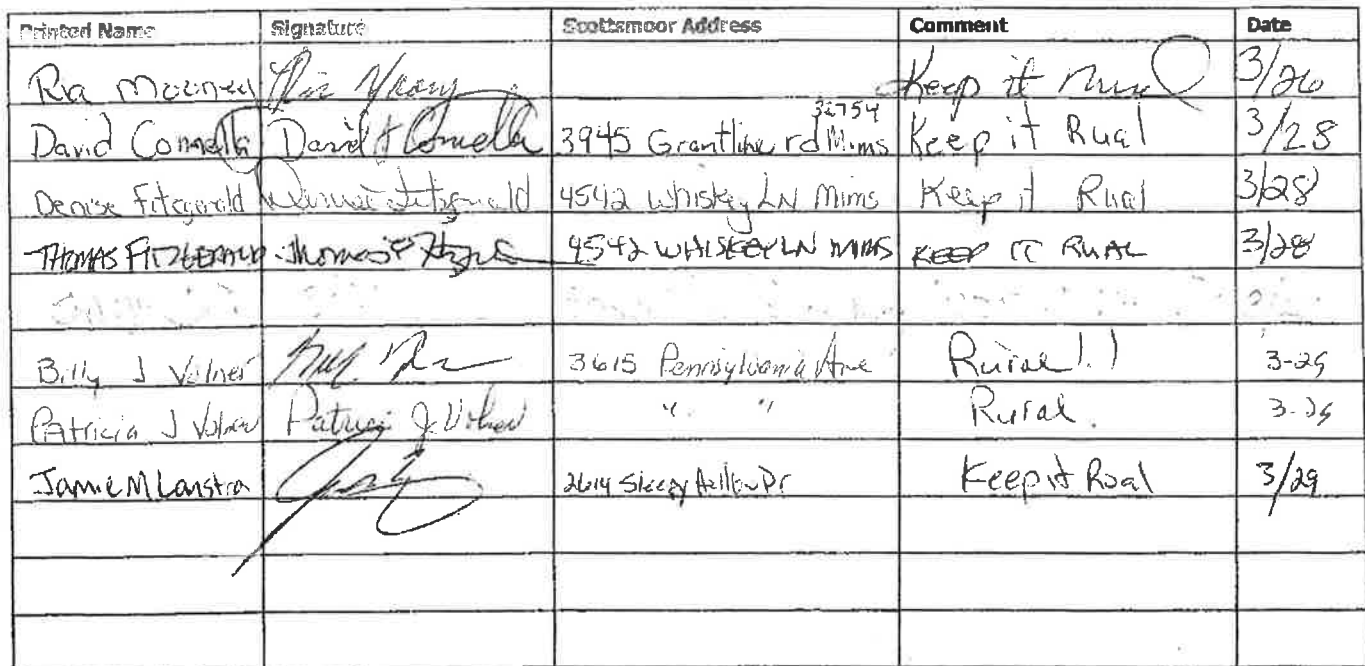 Printed Name Signature Scottsmoor Address Comment Date
Ria Mooney Keep it Rural 3/26
David Connella David Connella 3945 Grantline rd Mims 32754 Keep it Rual 3/28
Denise Fitzgerald Denise Fitzgerald 4542 Whiskey LN Mims Keep it Rual 3/28
THOMAS FITZGERALD Thomas 4542 WHISKEY LN MIMS KEEP IT RUAL 3/28
Billy J Volner 3615 Pennsylvania Ave Rural!! 3-29
Patricia J Volner Patricia J. Volner " " Rural. 3-29
Jamie M Lanstra 2614 Sleepy Hollow Dr Keep it Rual 3/29